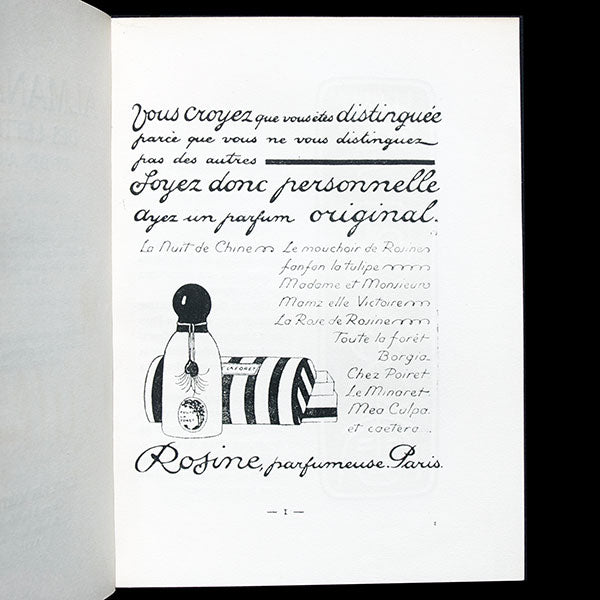 Vous croyez que vous êtes distinguée
parce que vous ne vous distinguez
pas des autres
Soyez donc personnelle
ayez un parfum original.
La Nuit de Chine Le mouchoir de Rosine
fanfan la tulipe
Madame et Monsieur
Mamz elle Victoire
La Rose de Rosine
Toute la forêt
Borgia
Chez Poiret
Le Minaret
Mea Culpa
et caetera...
LA FORET
Rosine, parfumeuse. Paris.
— 1 —
1
ALMANA